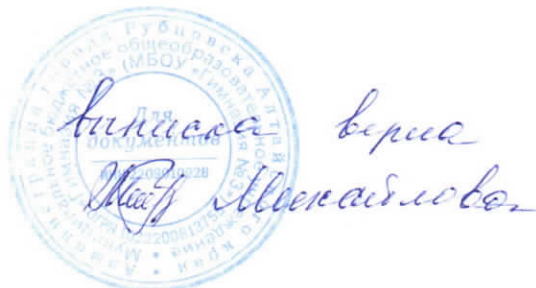 Администрация города Рубцовска Алтайского края
Муниципальное бюджетное общеобразовательное учреждение
«Гимназия №3» (МБОУ «Гимназия №3»)
Для
документов
выписка верна
Михайлова